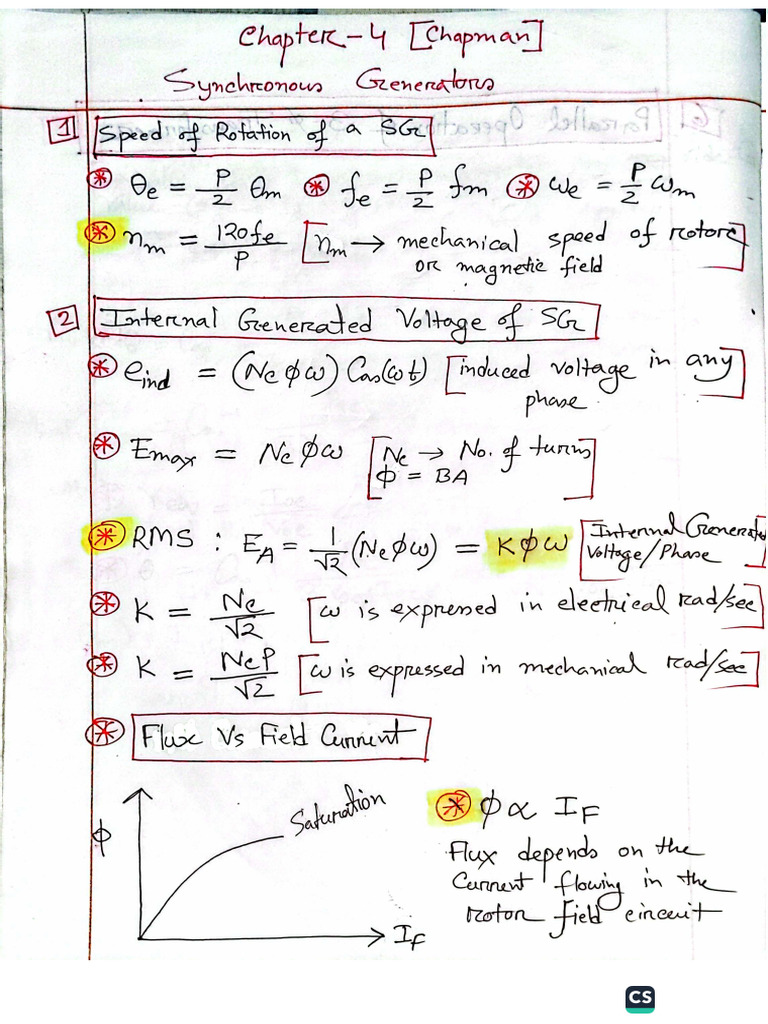 Chapter-4 [Chapman]
Synchronous Generators
1 Speed of Rotation of a SG
* θe = P/2 θm * fe = P/2 fm * ωe = P/2 ωm
* nm = 120fe/P [nm → mechanical speed of rotor
or magnetic field]
2 Internal Generated Voltage of SG
* eind = (Nc φω) Cos(ωt) [induced voltage in any
phase]
* Emax = Nc φω [Nc → No. of turns
φ = BA]
* RMS : EA = 1/√2 (Nc φω) = Kφω [Internal Generated
Voltage/Phase]
* K = Nc/√2 [ω is expressed in electrical rad/sec]
* K = NcP/√2 [ω is expressed in mechanical rad/sec]
* Flux Vs Field Current
Saturation
φ
IF
* φ ∝ IF
Flux depends on the
Current flowing in the
rotor field circuit
CS